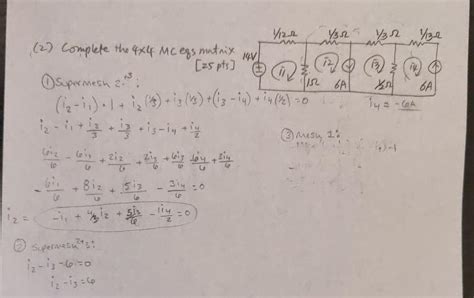 (2) Complete the 4x4 MC eqs matrix
[25 pts]
14V
1/12Ω
1/3Ω
1/3Ω
i1
i2
i3
i4
1Ω
6A
6A
i4 = -6A
① Supermesh 2:3
(i2-i1)·1 + i2(1/3) + i3(1/3) + (i3-i4) + i4(1/2) = 0
i2 - i1 + i2/3 + i3/3 + i3 - i4 + i4/2
6i2/6 - 6i1/6 + 2i2/6 + 2i3/6 + 6i3/6 6i4/6 + 3i4/6
- 6i1/6 + 8i2/6 + 5i3/6 - 3i4/6 = 0
i2 = -i1 + 4/3 i2 + 5i3/6 - 1i4/2 = 0
② supermesh
i2 - i3 - 6 = 0
i2 - i3 = 6
③ Mesh 2: